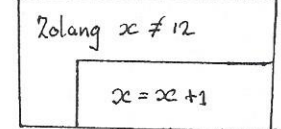 Zolang x ≠ 12
x = x + 1